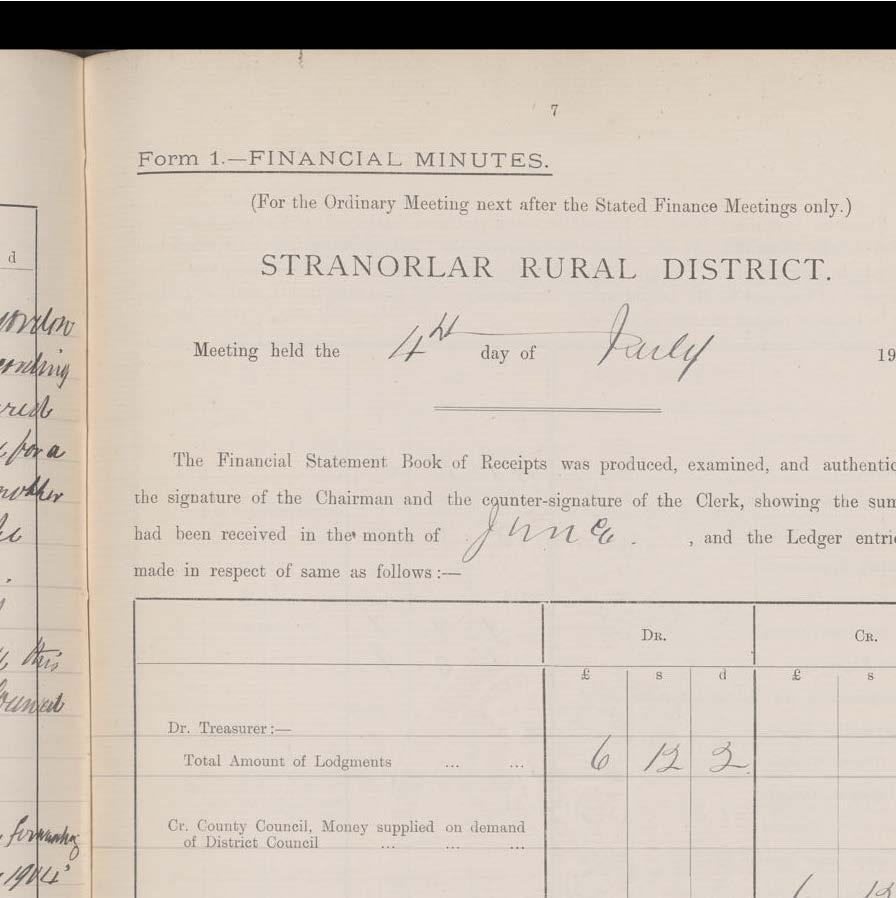 7
Form 1.—FINANCIAL MINUTES.
(For the Ordinary Meeting next after the Stated Finance Meetings only.)
STRANORLAR RURAL DISTRICT.
Meeting held the 4th day of July 19
The Financial Statement Book of Receipts was produced, examined, and authentic
the signature of the Chairman and the counter-signature of the Clerk, showing the sum
had been received in the month of June . , and the Ledger entrie
made in respect of same as follows:—
Dr. Cr.
£ s d £ s
Dr. Treasurer:—
Total Amount of Lodgments ... ... 6 12 2
Cr. County Council, Money supplied on demand
of District Council ... ... ...
d
for a
this
1904